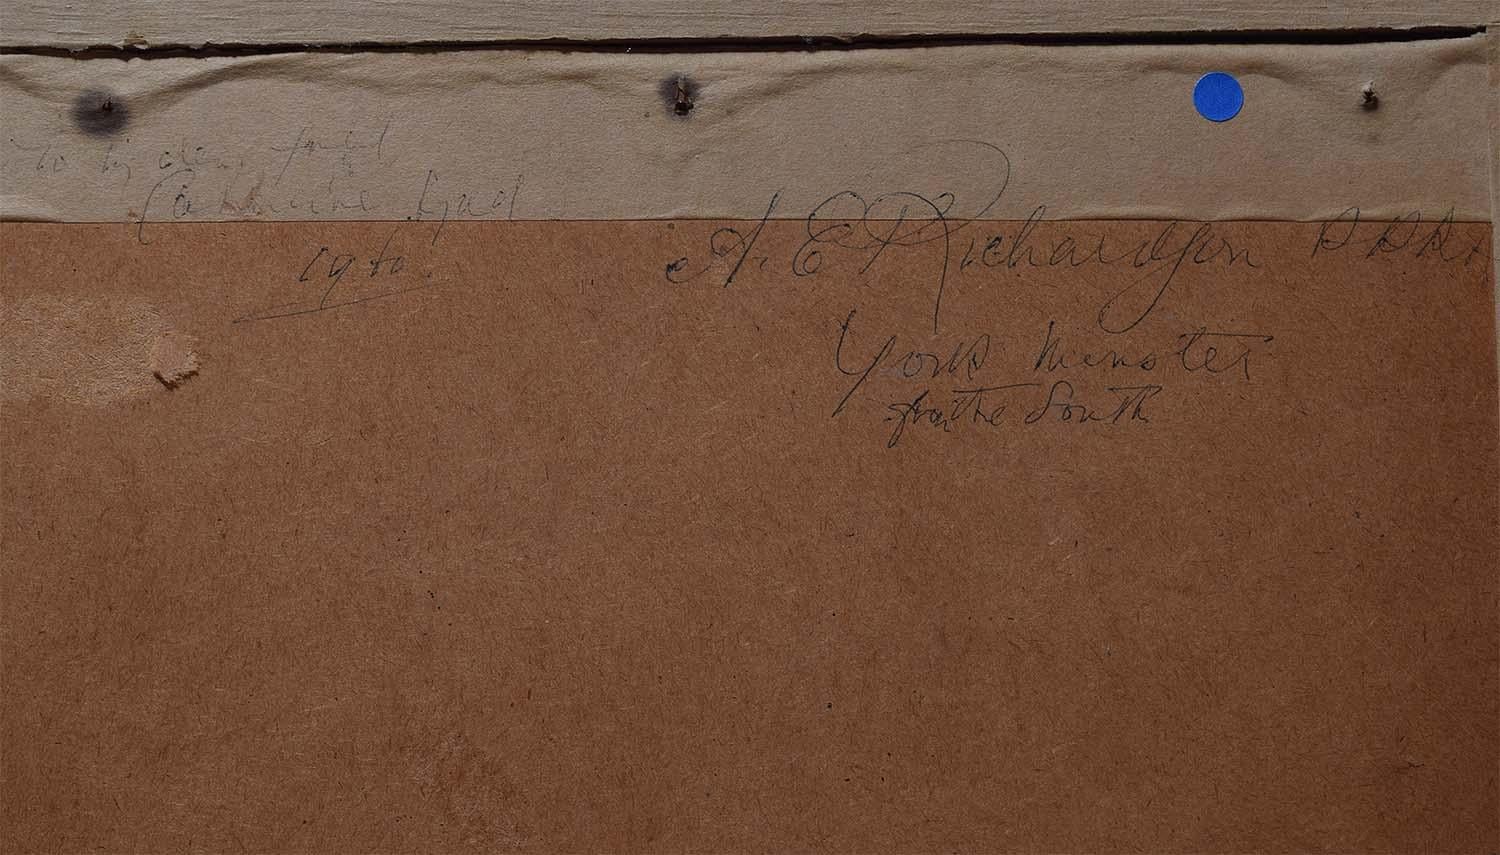 To my dear
Catherine
1960.
A. E Richardson P.P.R.A
York Minster
from the South